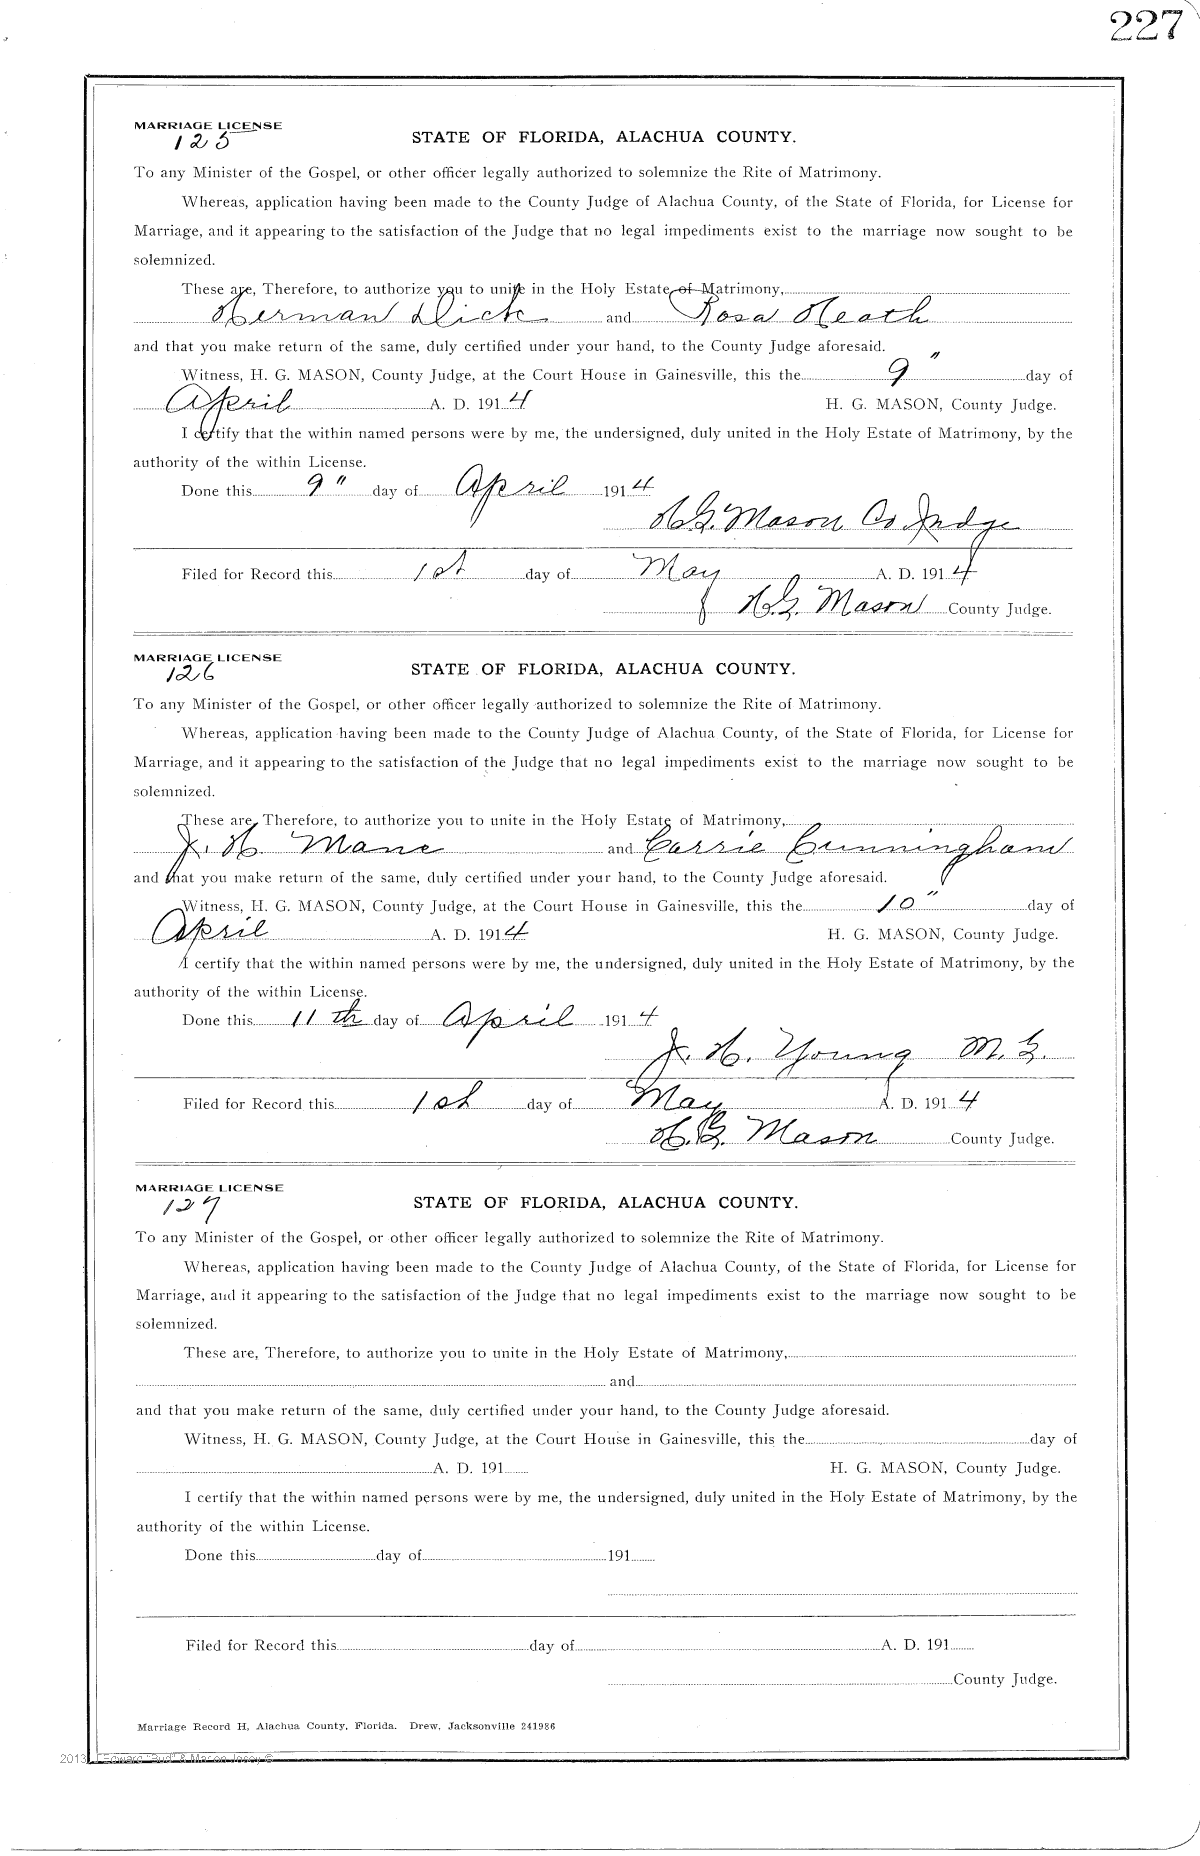 227
MARRIAGE LICENSE
125
STATE OF FLORIDA, ALACHUA COUNTY.
To any Minister of the Gospel, or other officer legally authorized to solemnize the Rite of Matrimony.
Whereas, application having been made to the County Judge of Alachua County, of the State of Florida, for License for
Marriage, and it appearing to the satisfaction of the Judge that no legal impediments exist to the marriage now sought to be
solemnized.
These are, Therefore, to authorize you to unite in the Holy Estate of Matrimony,
Herman Dick and Rosa Heath
and that you make return of the same, duly certified under your hand, to the County Judge aforesaid.
Witness, H. G. MASON, County Judge, at the Court House in Gainesville, this the 9" day of
April A. D. 1914 H. G. MASON, County Judge.
I certify that the within named persons were by me, the undersigned, duly united in the Holy Estate of Matrimony, by the
authority of the within License.
Done this 9" day of April 1914
H.G. Mason Co Judge
Filed for Record this 1st day of May A. D. 1914
H.G. Mason County Judge.
MARRIAGE LICENSE
126
STATE OF FLORIDA, ALACHUA COUNTY.
To any Minister of the Gospel, or other officer legally authorized to solemnize the Rite of Matrimony.
Whereas, application having been made to the County Judge of Alachua County, of the State of Florida, for License for
Marriage, and it appearing to the satisfaction of the Judge that no legal impediments exist to the marriage now sought to be
solemnized.
These are, Therefore, to authorize you to unite in the Holy Estate of Matrimony,
J. H. Mane and Carrie Cunningham
and that you make return of the same, duly certified under your hand, to the County Judge aforesaid.
Witness, H. G. MASON, County Judge, at the Court House in Gainesville, this the 10" day of
April A. D. 1914 H. G. MASON, County Judge.
I certify that the within named persons were by me, the undersigned, duly united in the Holy Estate of Matrimony, by the
authority of the within License.
Done this 11th day of April 1914
J. H. Young M.G.
Filed for Record this 1st day of May A. D. 1914
H.G. Mason County Judge.
MARRIAGE LICENSE
127
STATE OF FLORIDA, ALACHUA COUNTY.
To any Minister of the Gospel, or other officer legally authorized to solemnize the Rite of Matrimony.
Whereas, application having been made to the County Judge of Alachua County, of the State of Florida, for License for
Marriage, and it appearing to the satisfaction of the Judge that no legal impediments exist to the marriage now sought to be
solemnized.
These are, Therefore, to authorize you to unite in the Holy Estate of Matrimony,
and
and that you make return of the same, duly certified under your hand, to the County Judge aforesaid.
Witness, H. G. MASON, County Judge, at the Court House in Gainesville, this the day of
A. D. 191 H. G. MASON, County Judge.
I certify that the within named persons were by me, the undersigned, duly united in the Holy Estate of Matrimony, by the
authority of the within License.
Done this day of 191
Filed for Record this day of A. D. 191
County Judge.
Marriage Record H, Alachua County, Florida. Drew, Jacksonville 241986
2013 Edward "Bud" &